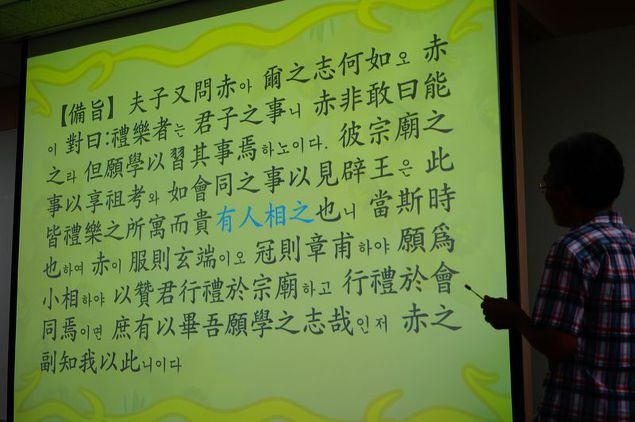 【備旨】 夫子又問赤아 爾之志何如오 赤
이 對曰:禮樂者는 君子之事니 赤非敢曰能
之라 但願學以習其事焉하노이다. 彼宗廟之
事以享祖考와 如會同之事以見辟王은 此
皆禮樂之所寓而貴有人相之也니 當斯時
也하여 赤이 服則玄端이오 冠則章甫하야 願爲
小相하야 以贊君行禮於宗廟하고 行禮於會
同焉이면 庶有以畢吾願學之志哉인저 赤之
副知我以此니이다